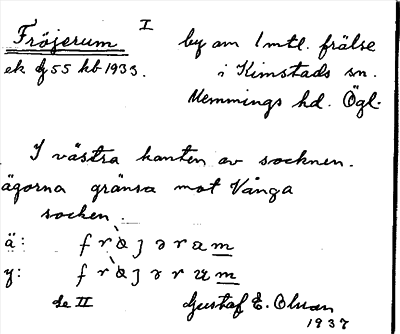 I
Fröjerum by om 1 mtl. frälse
ek bl 55 kb 1933. i Kimstads sn.
Memmings hd. Ögl.
I västra kanten av socknen.
ägorna gränsa mot Vånga
socken.
ä: frøjəram
y: frøjərum
se II Gustaf E. Olsson
1937